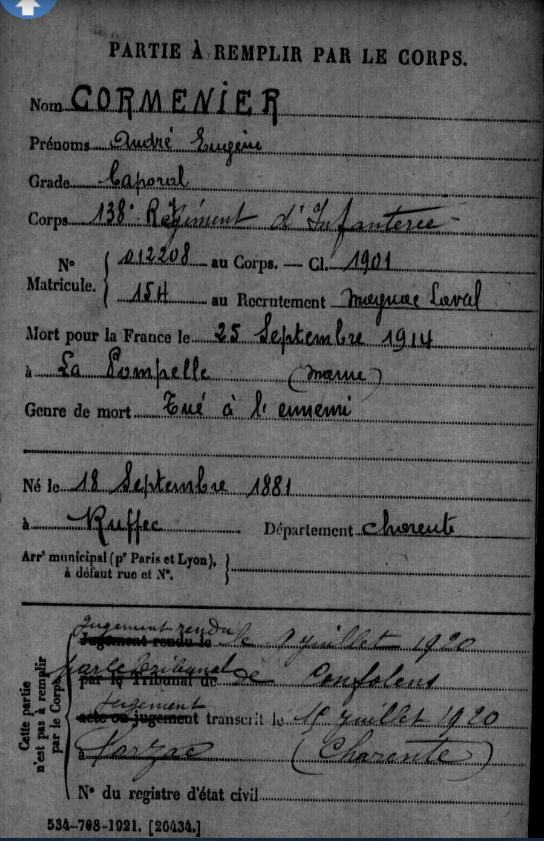 PARTIE À REMPLIR PAR LE CORPS.
Nom CORMENIER
Prénoms André Eugène
Grade Caporal
Corps 138e Régiment d'Infanterie
N° Matricule. 012208 au Corps. — Cl. 1901
154 au Recrutement Magnac Laval
Mort pour la France le 25 Septembre 1914
à La Pompelle (Marne)
Genre de mort Tué à l'ennemi
Né le 18 Septembre 1881
à Ruffec Département Charente
Arr' municipal (p' Paris et Lyon),
à défaut rue et N°.
Cette partie n'est pas à remplir par le Corps.
Jugement rendu
Jugement rendu le le juillet 1920
par le Tribunal
par le Tribunal de de Confolens
Jugement
acte ou jugement transcrit le juillet 1920
à (Charente)
N° du registre d'état civil
534-708-1921. [26434.]